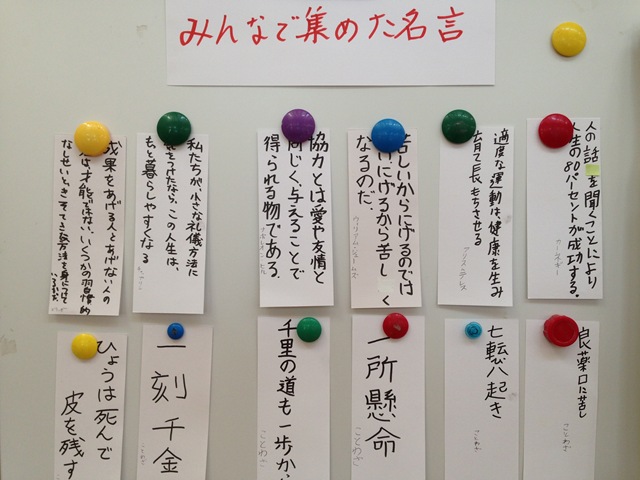 みんなで集めた名言
人の話を聞くことにより
人生の80パーセントが成功する。
カーネギー
適度な運動は、健康を生み
育て長もちさせる
アリストテレス
苦しいからにげるのでは
にげるから苦しく
なるのだ。
ウィリアム・ジェームズ
協力とは愛や友情と
同じく、与えることで
得られる物である。
私たちが、小さな礼儀方法に
気をつけたなら、この人生は、
もっと暮らしやすくなる
成果をあげる人とあげない人の
才能ではない。いくつかの習慣的
なしせいと、きそてき方法を身につけて
いるかだ。
良薬口に苦し
ことわざ
七転び八起き
ことわざ
一所懸命
ことわざ
千里の道も一歩から
ことわざ
一刻千金
ことわざ
ひょうは死んで
皮を残す